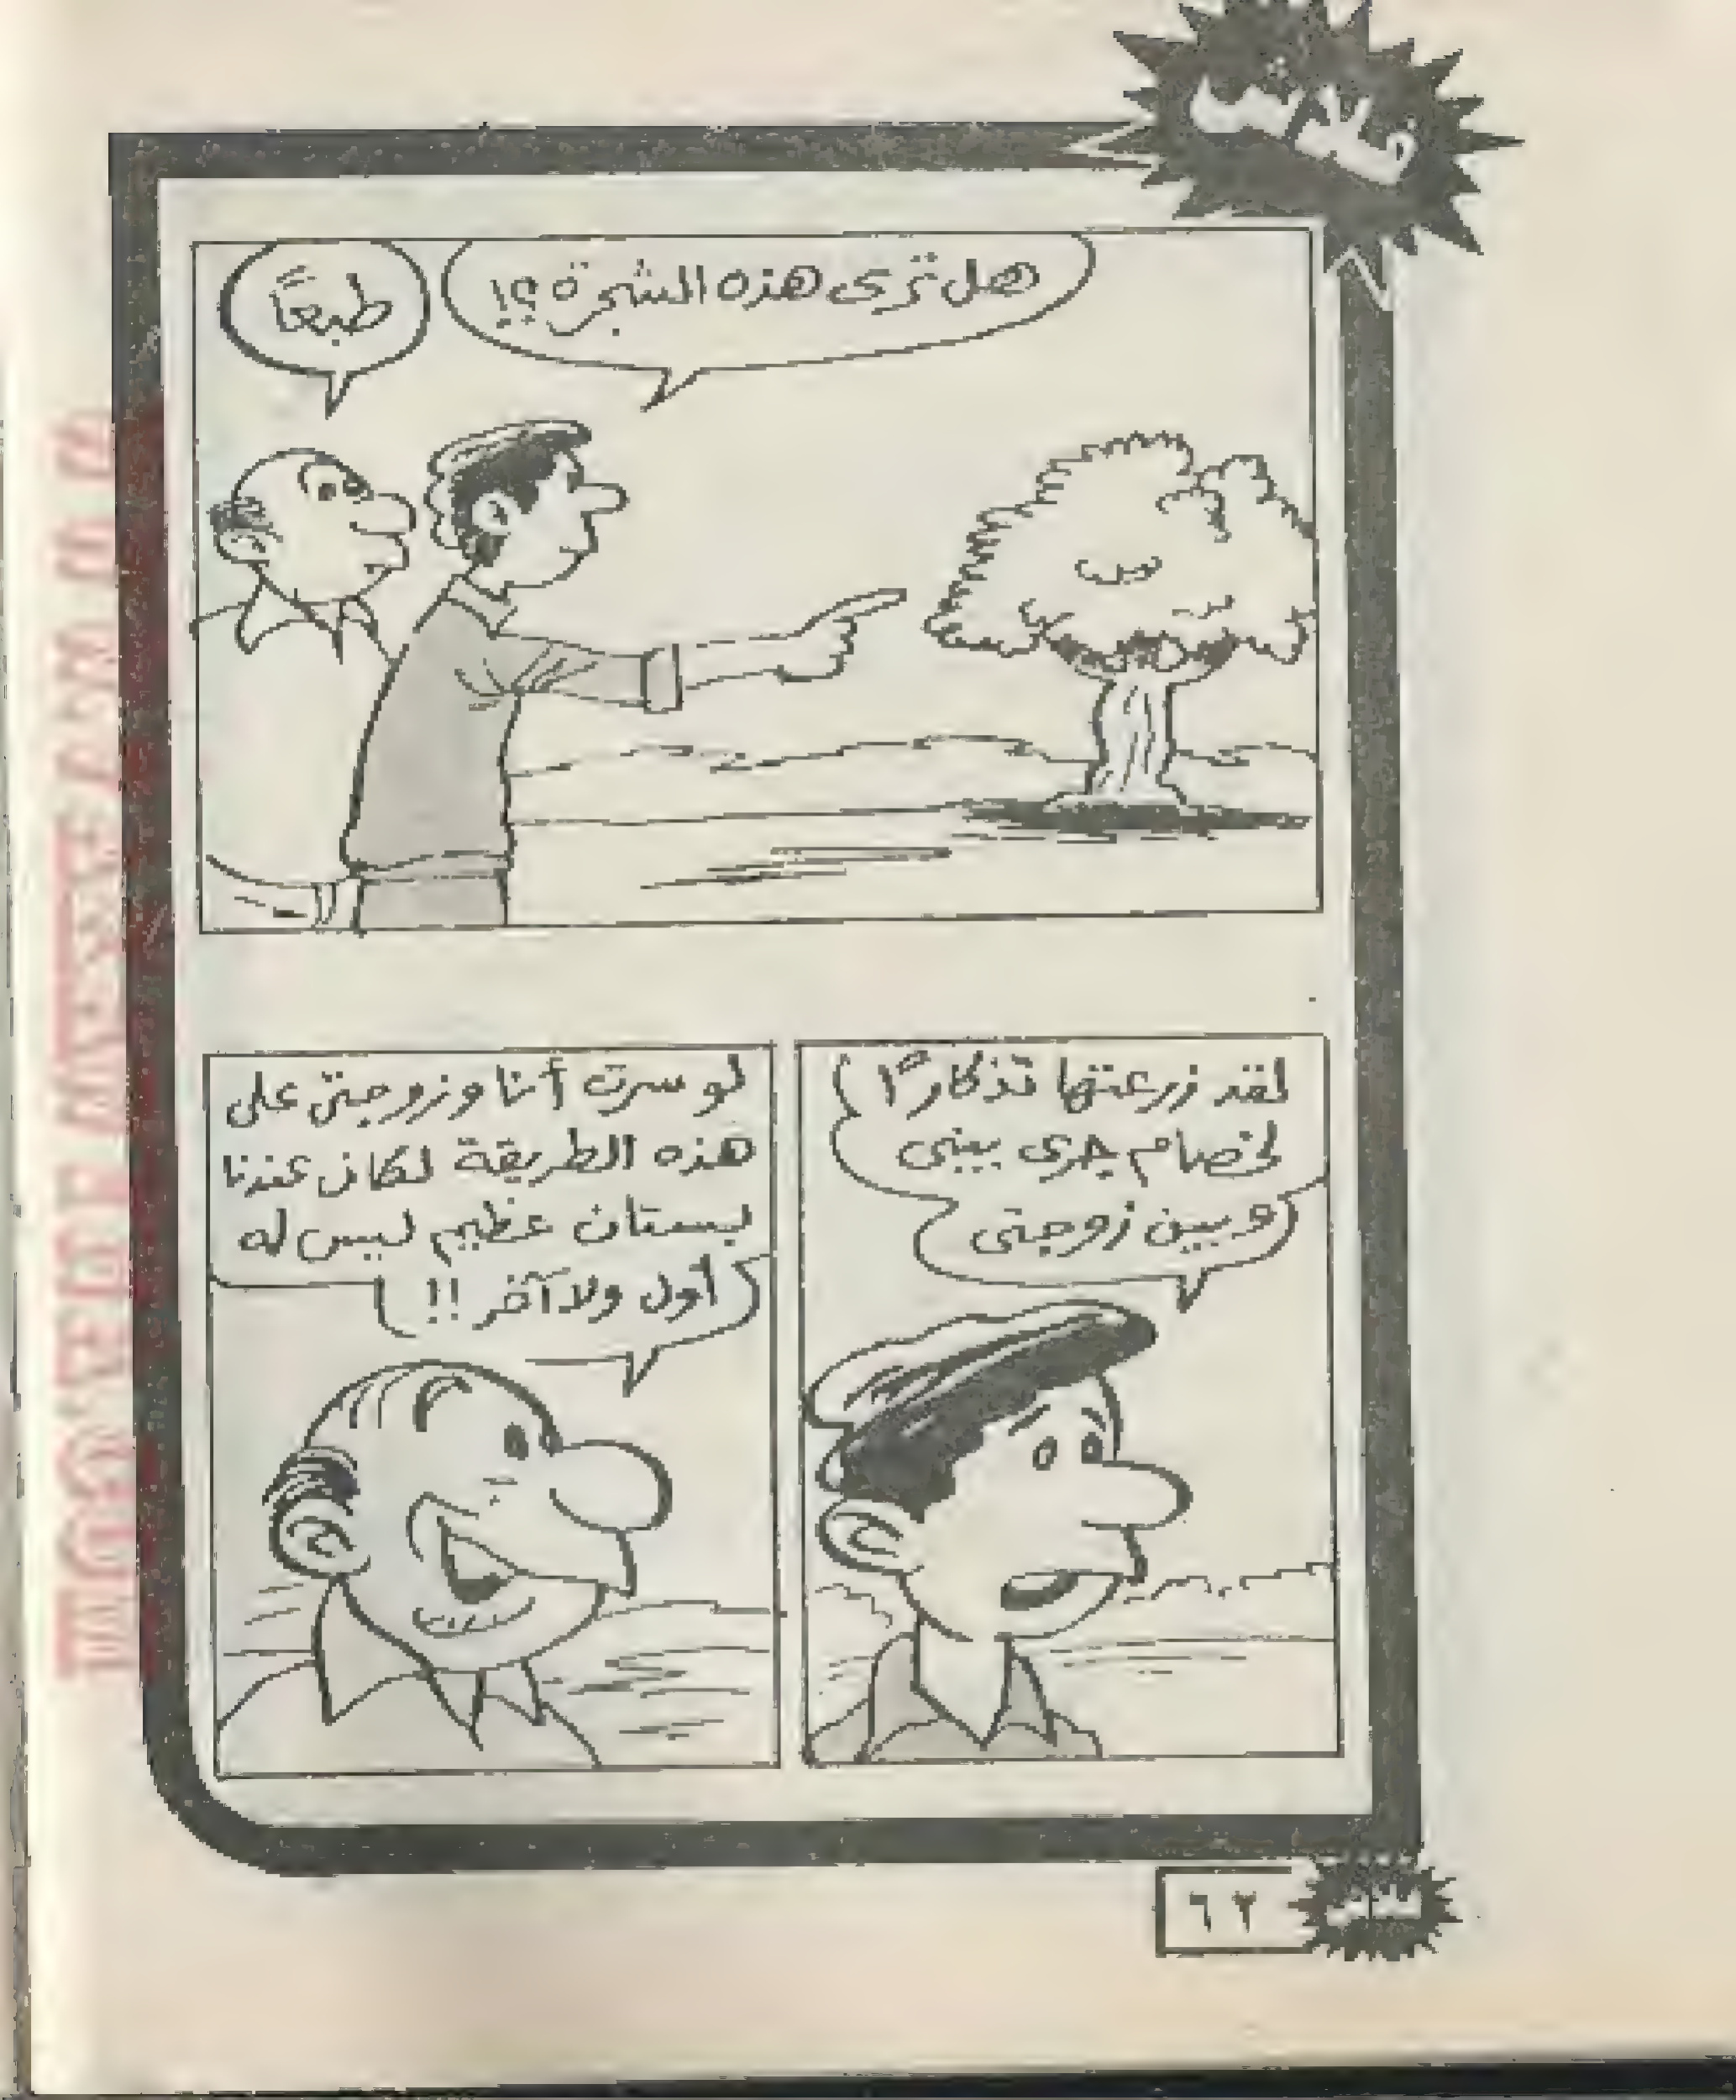 فلاش
هل ترى هذه الشجرة ؟!
طبعاً
لقد زرعتها تذكارًا
لخصام جرى بينى
وبين زوجتى
لو سرت أنا وزوجتى على
هذه الطريقة لكان عندنا
بستان عظيم ليس له
أول ولا آخر !!
فلاش
٦٢